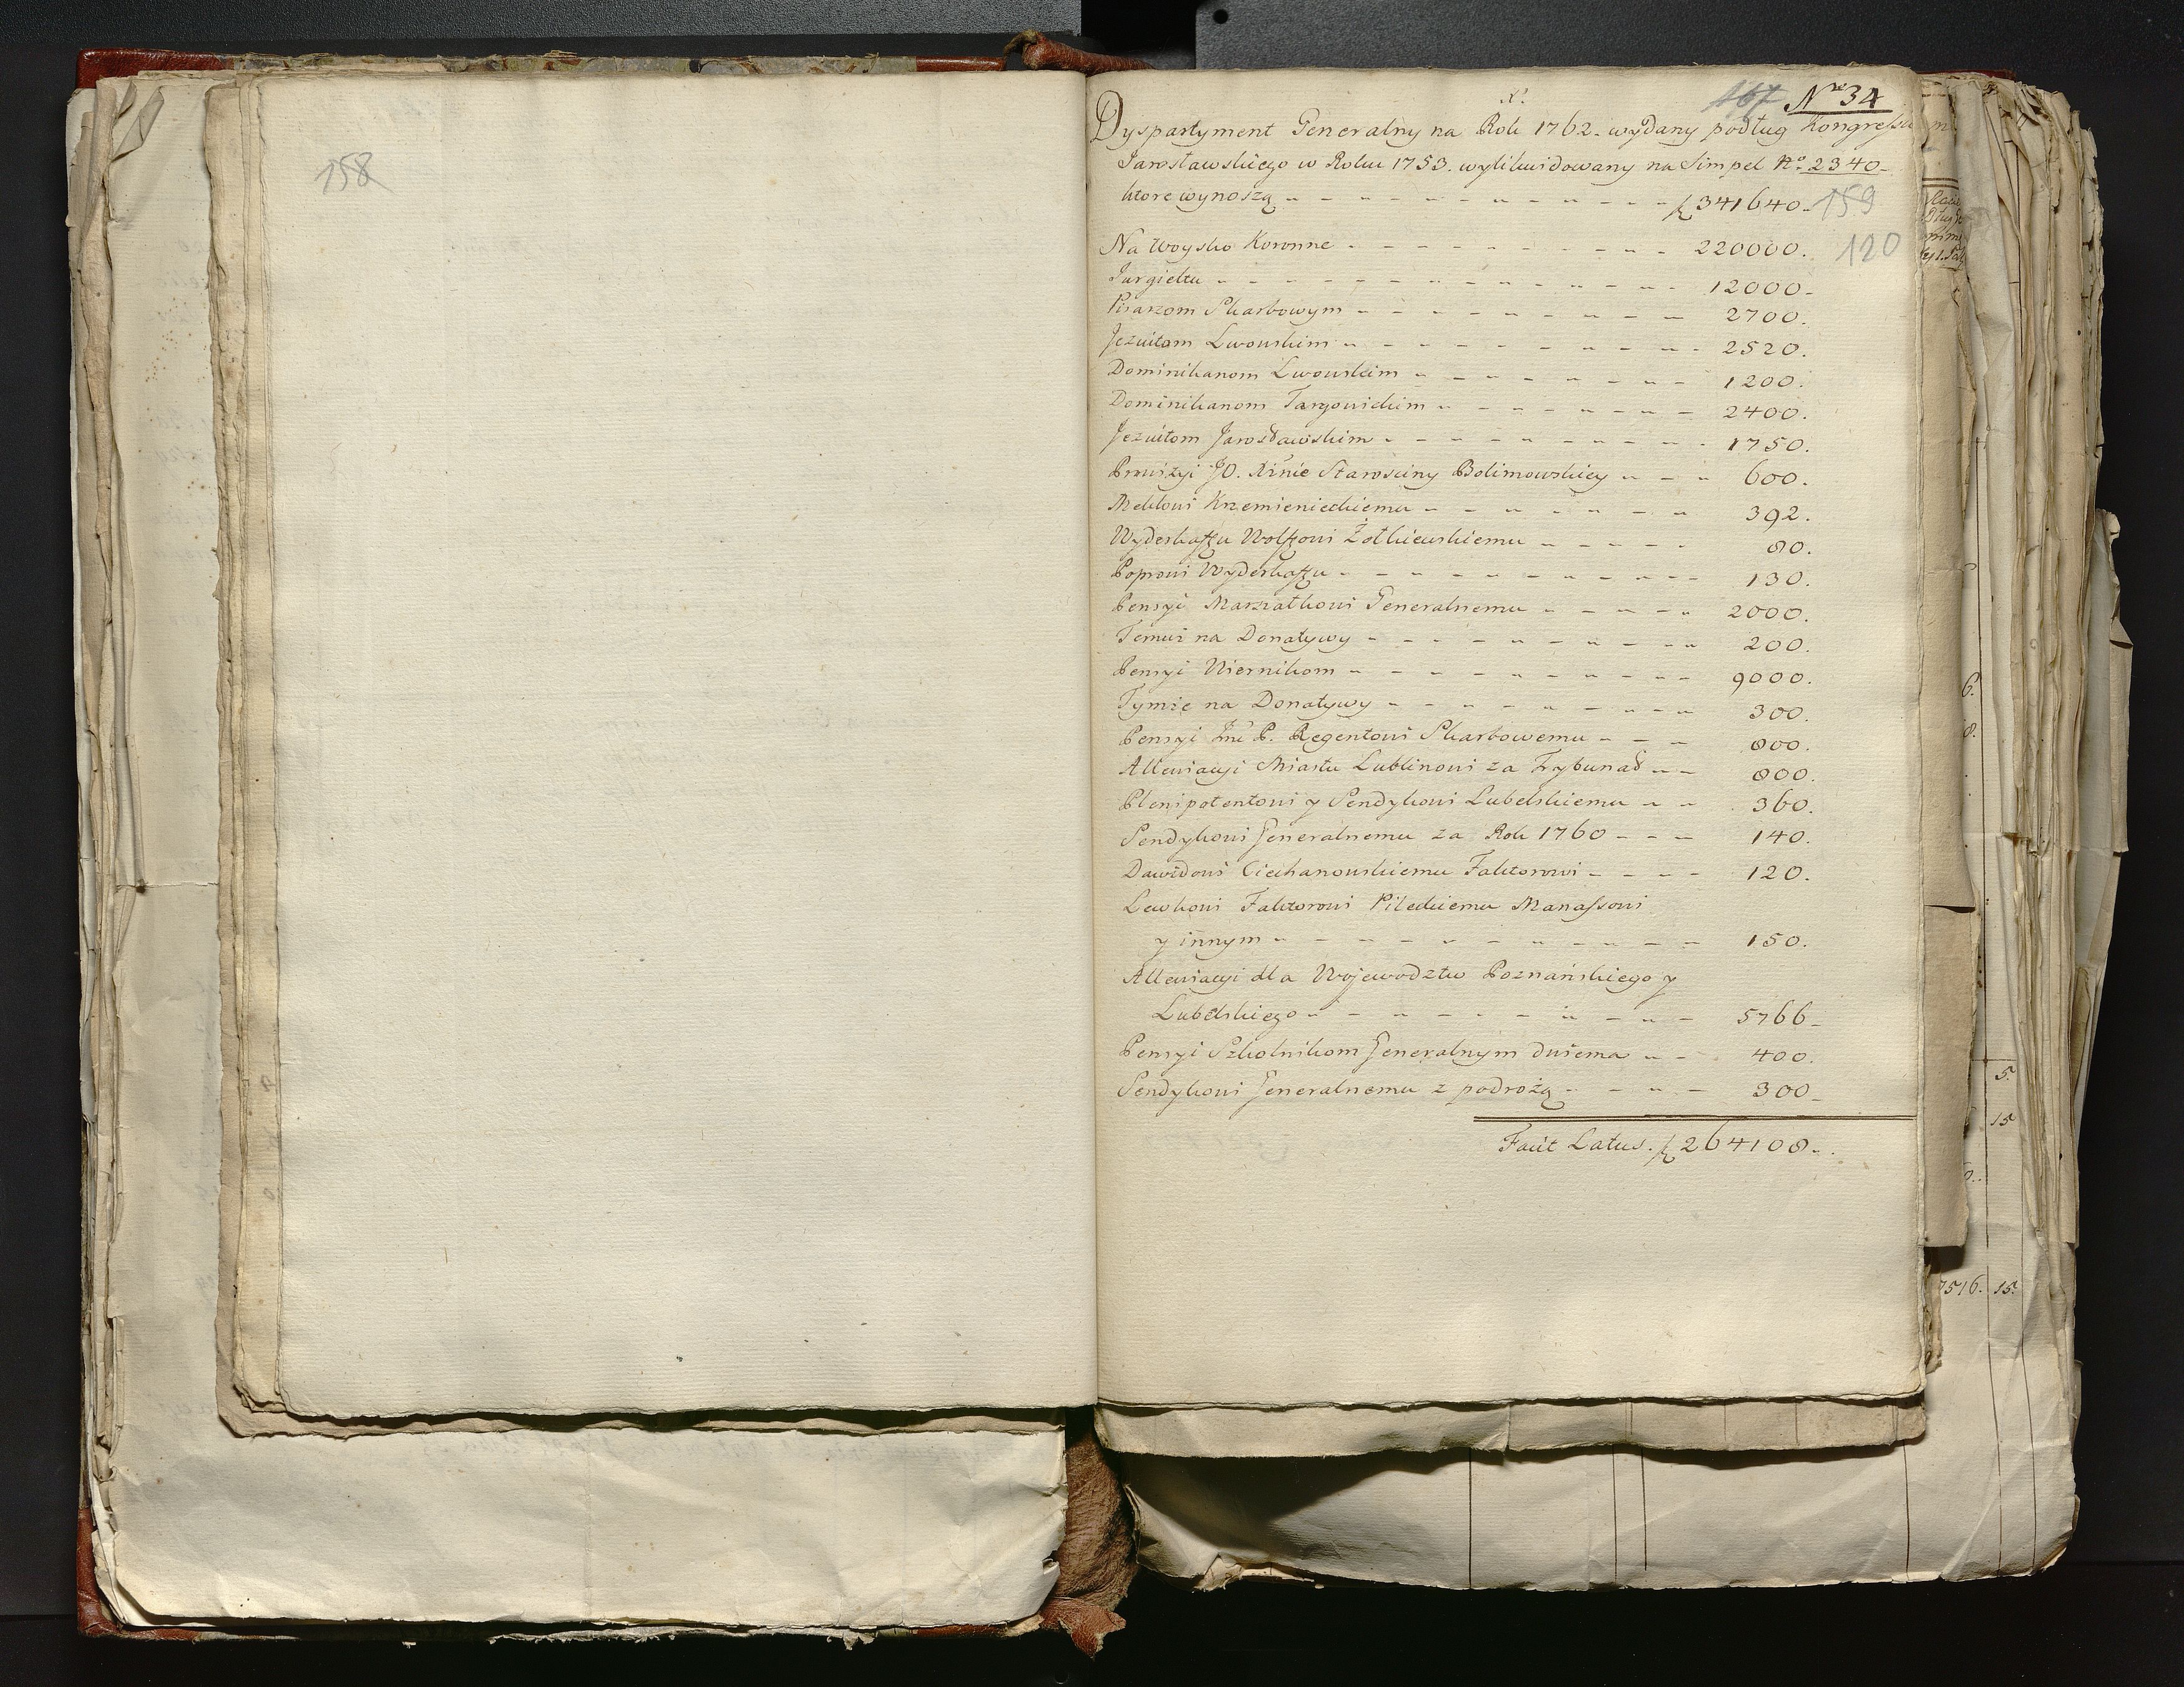 158
167 Nro 34
Dyspartyment Generalny na Rok 1762. wydany podług Kongressu
Jarosławskiego w Roku 1753. wylikwidowany na Simpel No. 2340
ktore wynoszą - - - - - - - - - - - f 341640.
159
Na Woysko Koronne - - - - - - - - - - 220000.
120
Jurgieltu - - - - - - - - - - - - 12000
Pisarzom Skarbowym - - - - - - - - - 2700.
Jezuitom Lwowskim - - - - - - - - - 2520.
Dominikanom Lwowskim - - - - - - - - 1200.
Dominikanom Targowickim - - - - - - - 2400.
Jezuitom Jarosławskim - - - - - - - - 1750.
JO. Xżnie Starosciny Bolimowskiey - - - 600.
Mekloui Krzemienieckiemu - - - - - - - 392.
Wyderkaffu Wolffowi Żołkiewskiemu - - - - - 80.
Wyderkaffu - - - - - - - - - - 130.
Pensyi Marszałkowi Generalnemu - - - - - 2000.
Temuż na Donatywy - - - - - - - - - 200.
Pensyi Wiernikom - - - - - - - - - - 9000.
Tymże na Donatywy - - - - - - - - - 300.
Pensyi Jmć P. Regentowi Skarbowemu - - - 800.
Allewiacyi Miastu Lublinowi za Trybunał - - 800.
Plenipotentowi y Sendykowi Lubelskiemu - - 360.
Sendykowi Generalnemu za Rok 1760 - - - 140.
Dawidowi Ciechanowskiemu Faktorowi - - - - 120.
Lewkowi Faktorowi Pileckiemu Manassowi
y innym - - - - - - - - - - - 150.
Allewiacyi dla Wojewodztw Poznańskiego y
Lubelskiego - - - - - - - - - - 5766
Pensyi Szkolnikom Generalnym dwiema - - 400.
Sendykowi Generalnemu z podrożą - - - - 300
Facit Latus. f 264108.
6.
8.
5.
15
7516. 15.